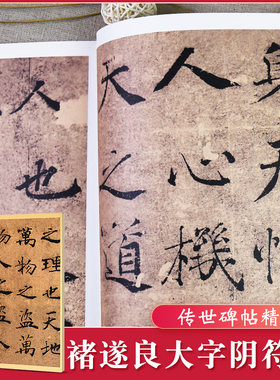 身天性
人心機
天之道
人也
之理也天地
萬物之盜萬
物人之盜人
传世碑帖精
褚遂良大字阴符